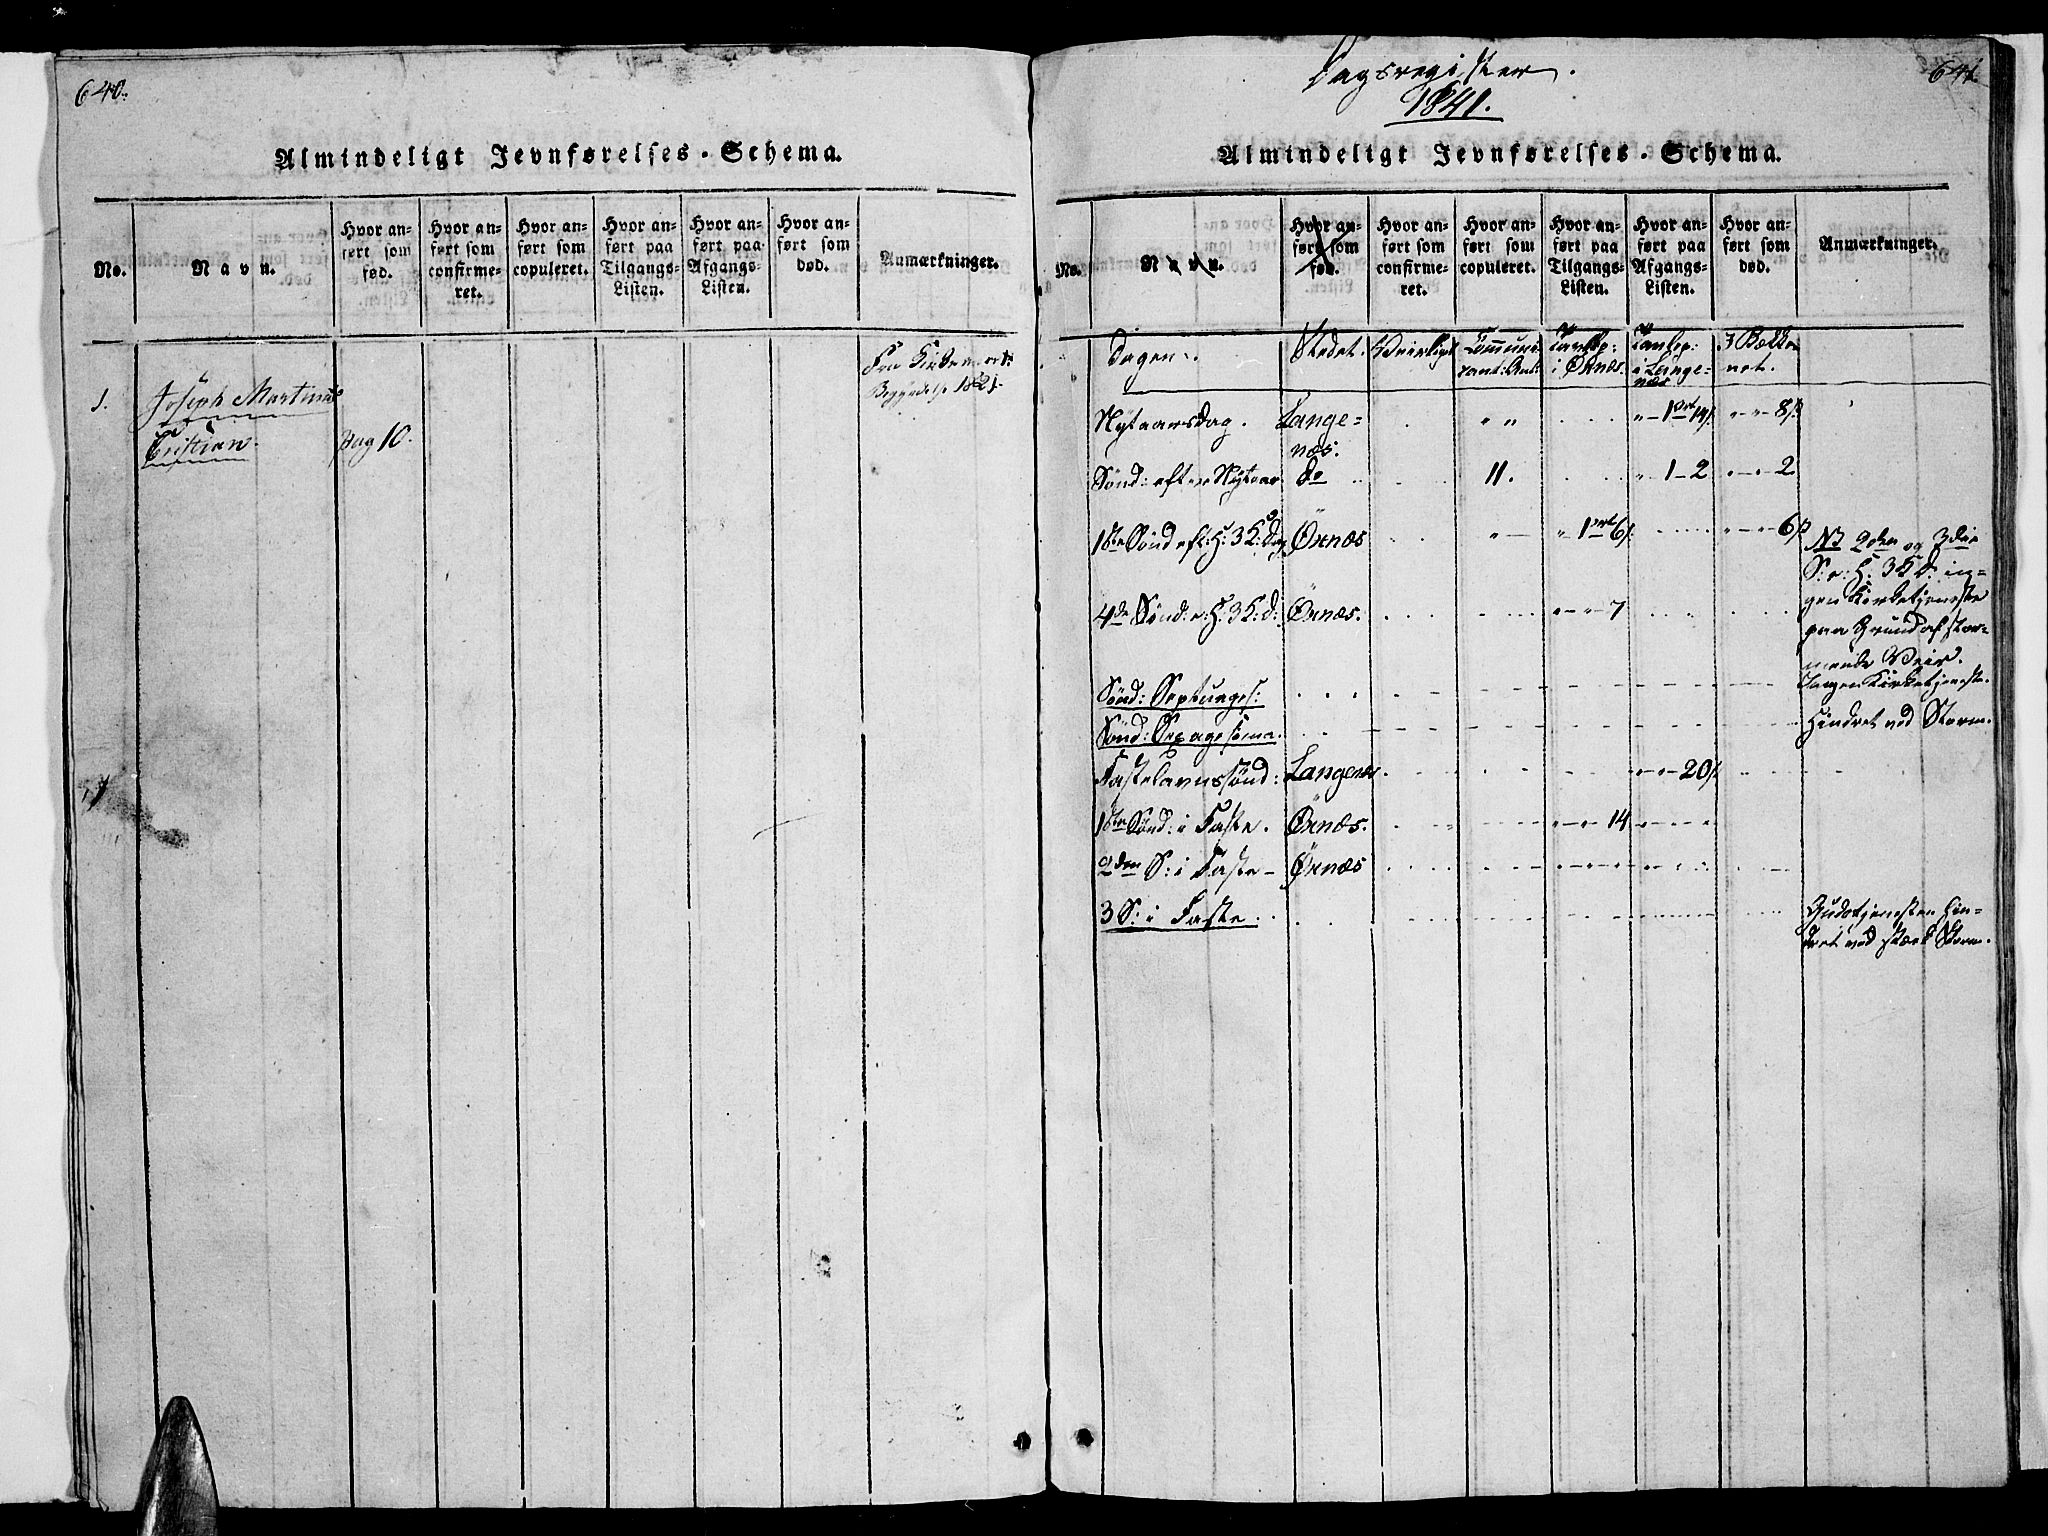 640.
Almindeligt Jevnførelses-Schema.
No.
Navn.
Hvor an-
ført som
fød.
Hvor an-
ført som
confirme-
ret.
Hvor an-
ført som
copuleret.
Hvor an-
ført paa
Tilgangs-
Listen.
Hvor an-
ført paa
Afgangs-
Listen.
Hvor an-
ført som
død.
Anmærkninger.
1.
Joseph Martinus
Cristian.
pag 10.
Fra
Begyndelse 1821.
Dagsregister.
1841.
641
Almindeligt Jevnførelses-Schema.
No.
Navn.
Hvor an-
ført som
fød.
Hvor an-
ført som
confirme-
ret.
Hvor an-
ført som
copuleret.
Hvor an-
ført paa
Tilgangs-
Listen.
Hvor an-
ført paa
Afgangs-
Listen.
Hvor an-
ført som
død.
Anmærkninger.
Dagen.
Stedet.
Veirliget
Communi-
cant: Ant:
Tavlep:
i Öxnæs.
Tavlep:
i Lange-
næs
I Bække-
net.
Nytaarsdag. Lange- " " " 1 ort 14 " " 8
næs.
Sönd: efter Nytaar do 11. " 1 - 2 " - " 2
1ste Sönd eft: H: 3 K: Dag Öxnæs " - " 1 ort 6 " - " 6
NB 2den og 3die
S: e: H. 3 K D: in-
gen Kirketjeneste
paa Grund af stor-
mende Veir.
4de Sönd: e: H: 3 K: D: Öxnæs. " - " 7
Sönd: Septuages: Ingen Kirketjeneste.
Sönd: Sexagesima. Hindret ved Storm.
Fastelavnssönd: Langenæs. " - " 20
1ste Sönd: i Faste. Öxnæs. " - " 14
2den S: i Faste - Öxnæs
3 S: i Faste. Gudstjenesten hin-
dret ved stærk Storm.